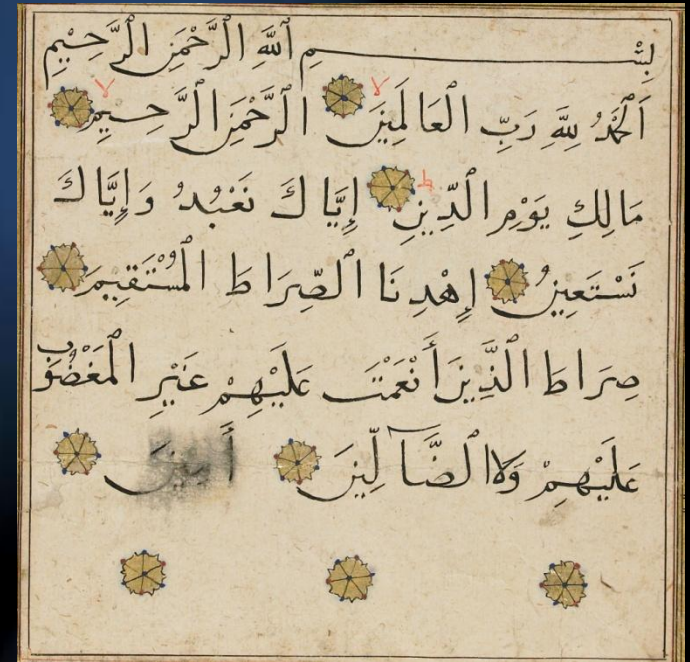 بِسْمِ ٱللَّهِ ٱلرَّحْمَٰنِ ٱلرَّحِيمِ
اَلْحَمْدُ لِلَّهِ رَبِّ الْعَالَمِينَ لا الرَّحْمَٰنِ الرَّحِيمِ لا
مَالِكِ يَوْمِ الدِّينِ ط إِيَّاكَ نَعْبُدُ وَإِيَّاكَ
نَسْتَعِينُ إِهْدِنَا الصِّرَاطَ الْمُسْتَقِيمَ
صِرَاطَ الَّذِينَ أَنْعَمْتَ عَلَيْهِمْ غَيْرِ الْمَغْضُوبِ
عَلَيْهِمْ وَلَا الضَّآلِّينَ أَمِينَ